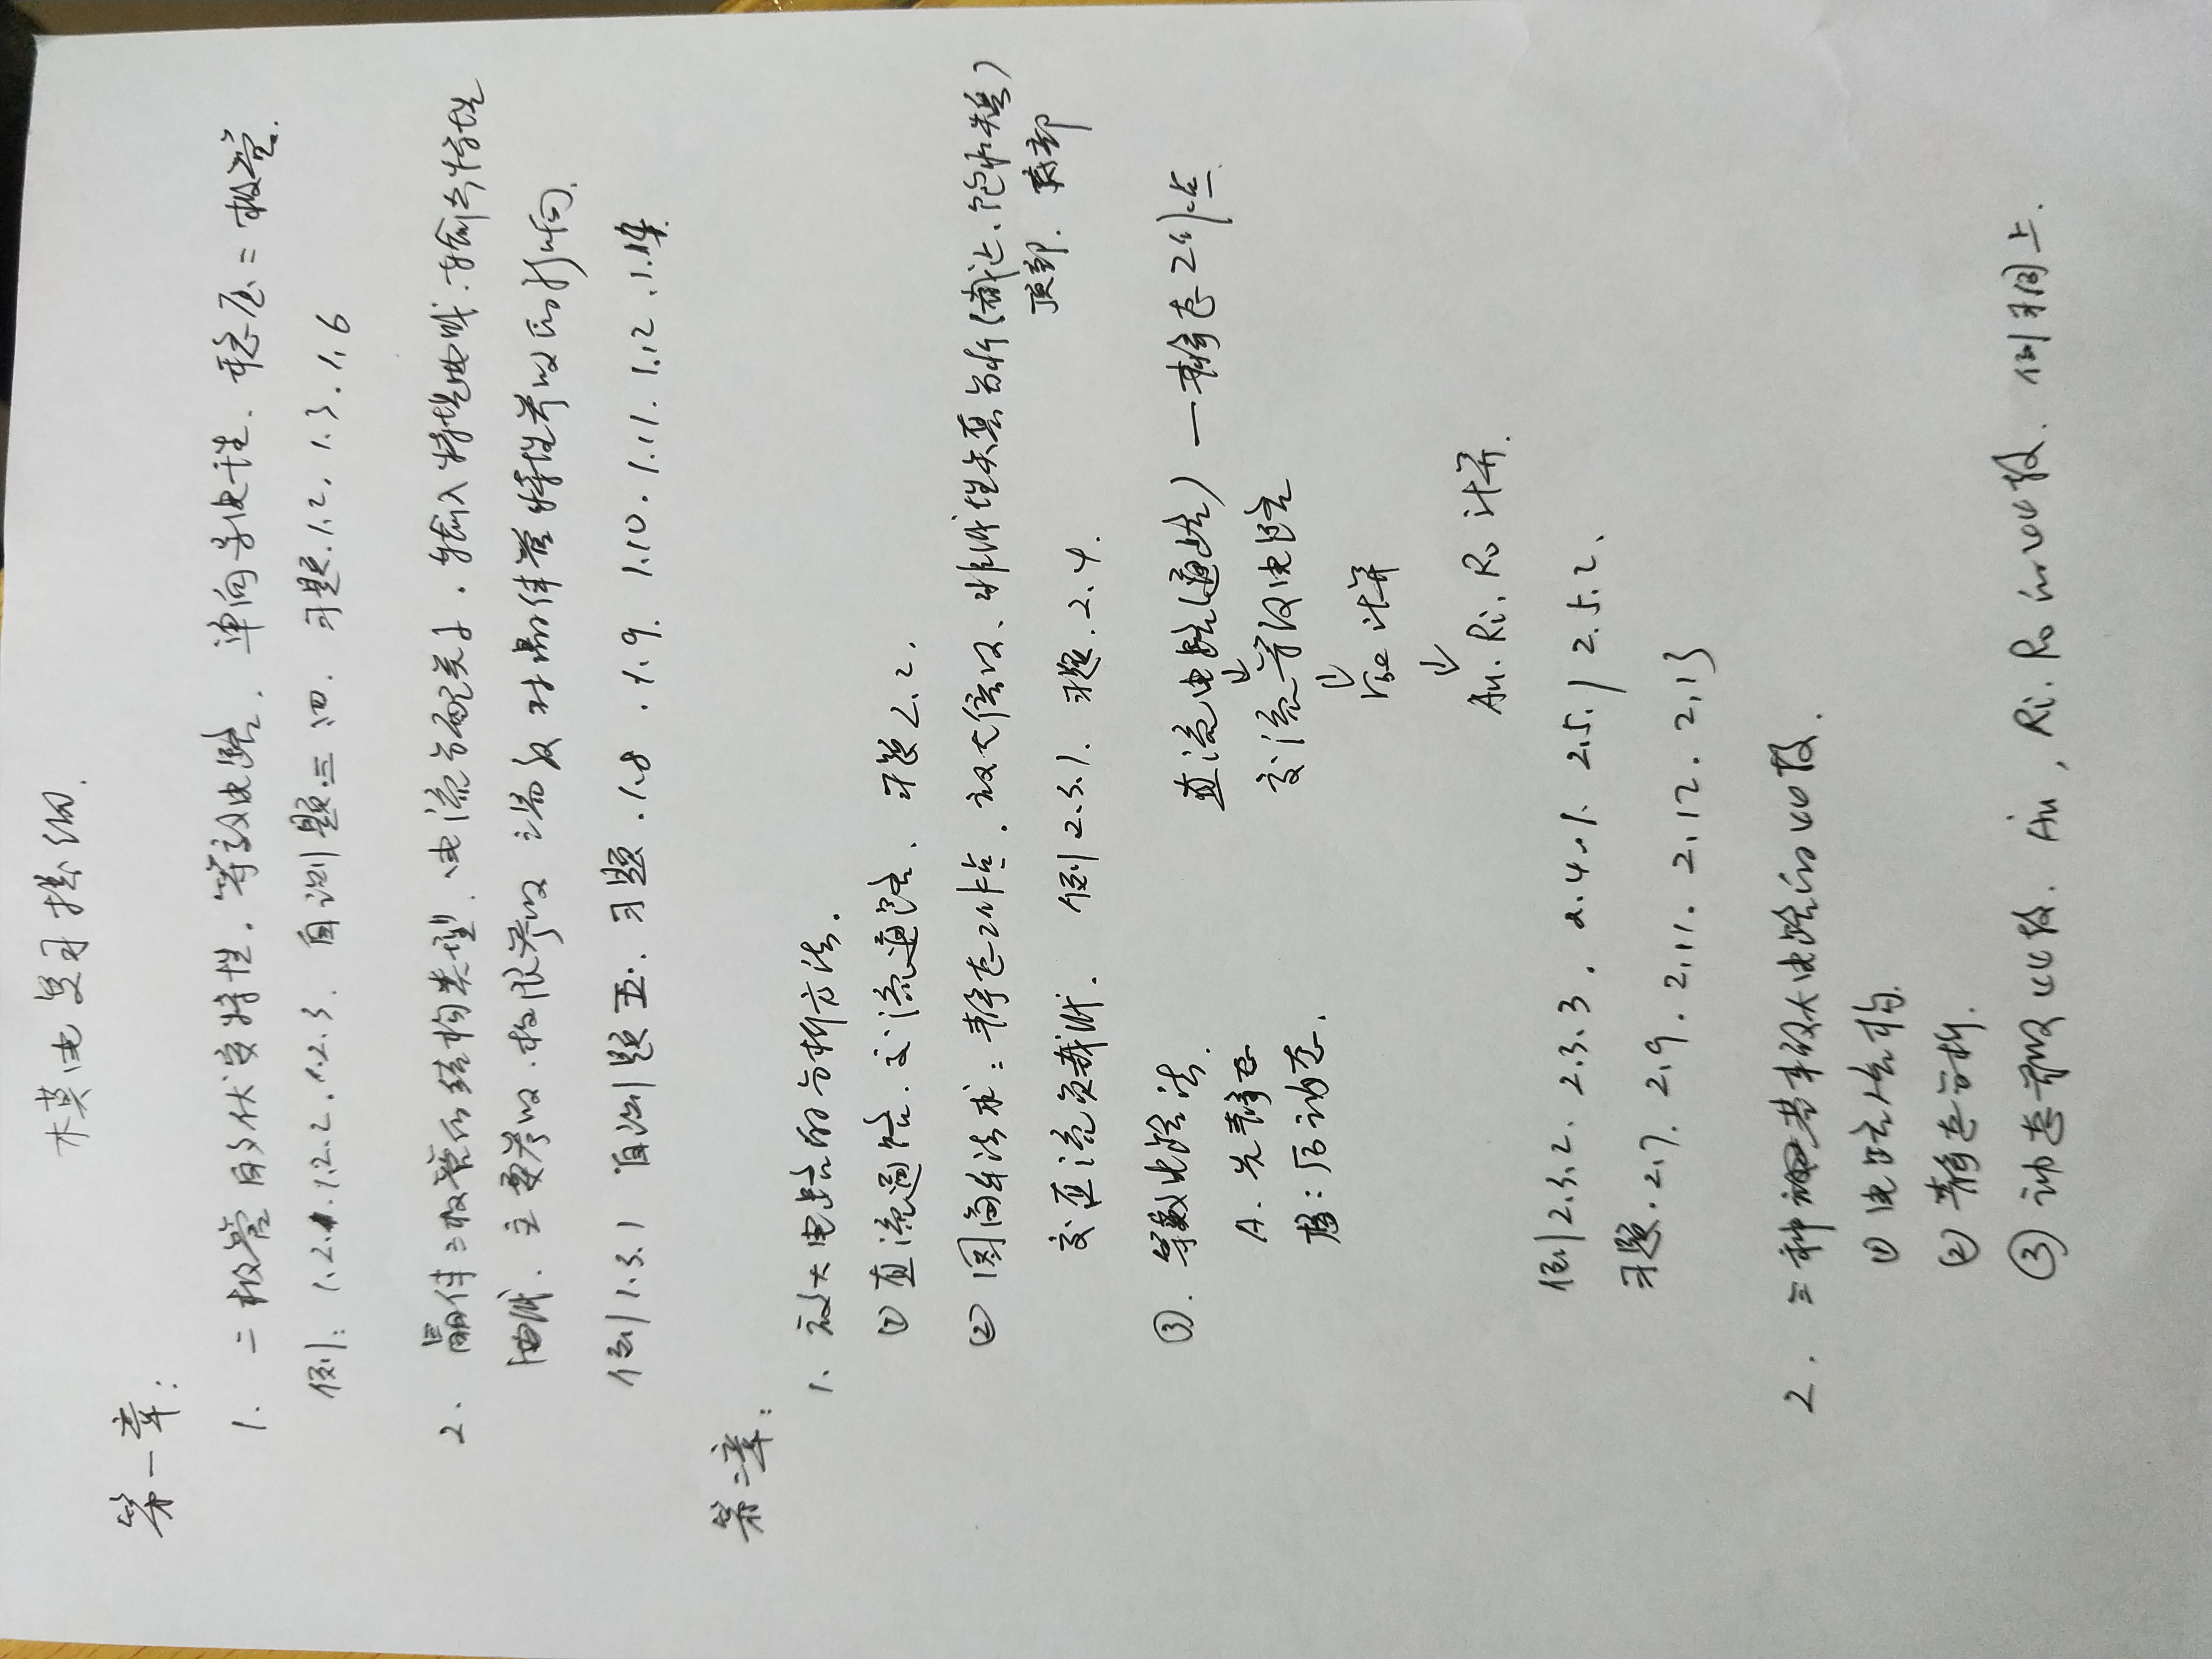 模电复习提纲.
第一章:
1. 二极管的伏安特性. 等效电路. 单向导电性. 稳压二极管.
例: 1.2.1. 1.2.2. 1.2.3. 自测题.三.四. 习题.1.2. 1.3. 1.6
2. 晶体三极管的结构类型. 电流分配关系. 输入特性曲线. 输出特性
曲线. 主要参数. 极限参数 温度对晶体管特性参数的影响.
例1.3.1 自测题五. 习题.1.8 .1.9. 1.10. 1.11. 1.12 .1.14.
第二章:
1. 放大电路的分析方法.
① 直流通路. 交流通路. 习题2.2.
② 图解法求: 静态工作点. 放大倍数. 非线性失真分析(截止、饱和失真)
顶部. 底部
交直流负载线. 例2.3.1. 习题.2.4.
③. 等效电路法.
直流电路(通路) — 静态工作点.
A. 先静态
↓
交流等效电路
B: 后动态.
↓
rbe 计算
↓
Au. Ri. Ro 计算.
例2.3.2. 2.3.3. 2.4.1. 2.5.1 2.5.2.
习题.2.7. 2.9. 2.11. 2.12. 2.13
2. 三种基本放大电路的比较.
① 电路结构.
② 静态分析.
③ 动态参数比较. Au, Ri. Ro的比较. 例习同上.